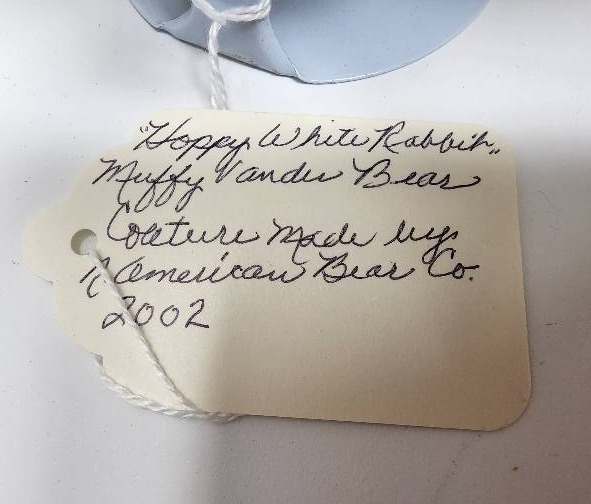 "Hoppy White Rabbit"
Muffy Vander Bear
Couture Made by
American Bear Co.
2002